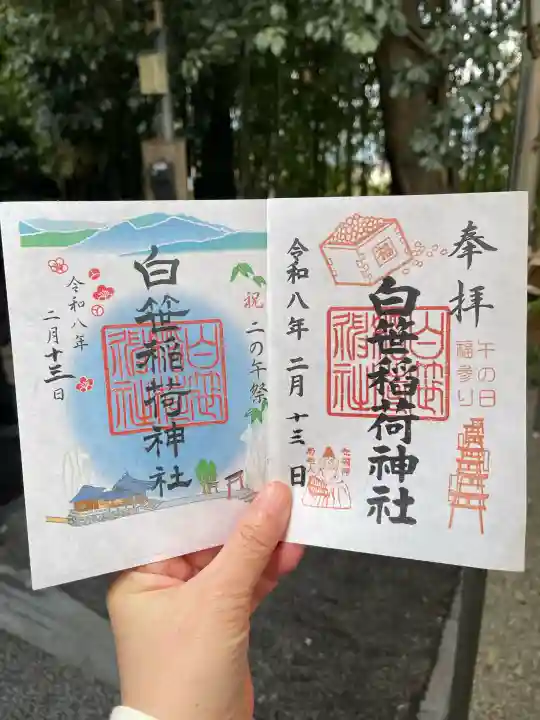 奉拝
午の日
福参り
白笹稲荷神社
白笹
稲荷
神社
福
令和八年 二月 十三 日
祝 二の午祭
白笹稲荷神社
白笹
稲荷
神社
令和八年
二月十三日